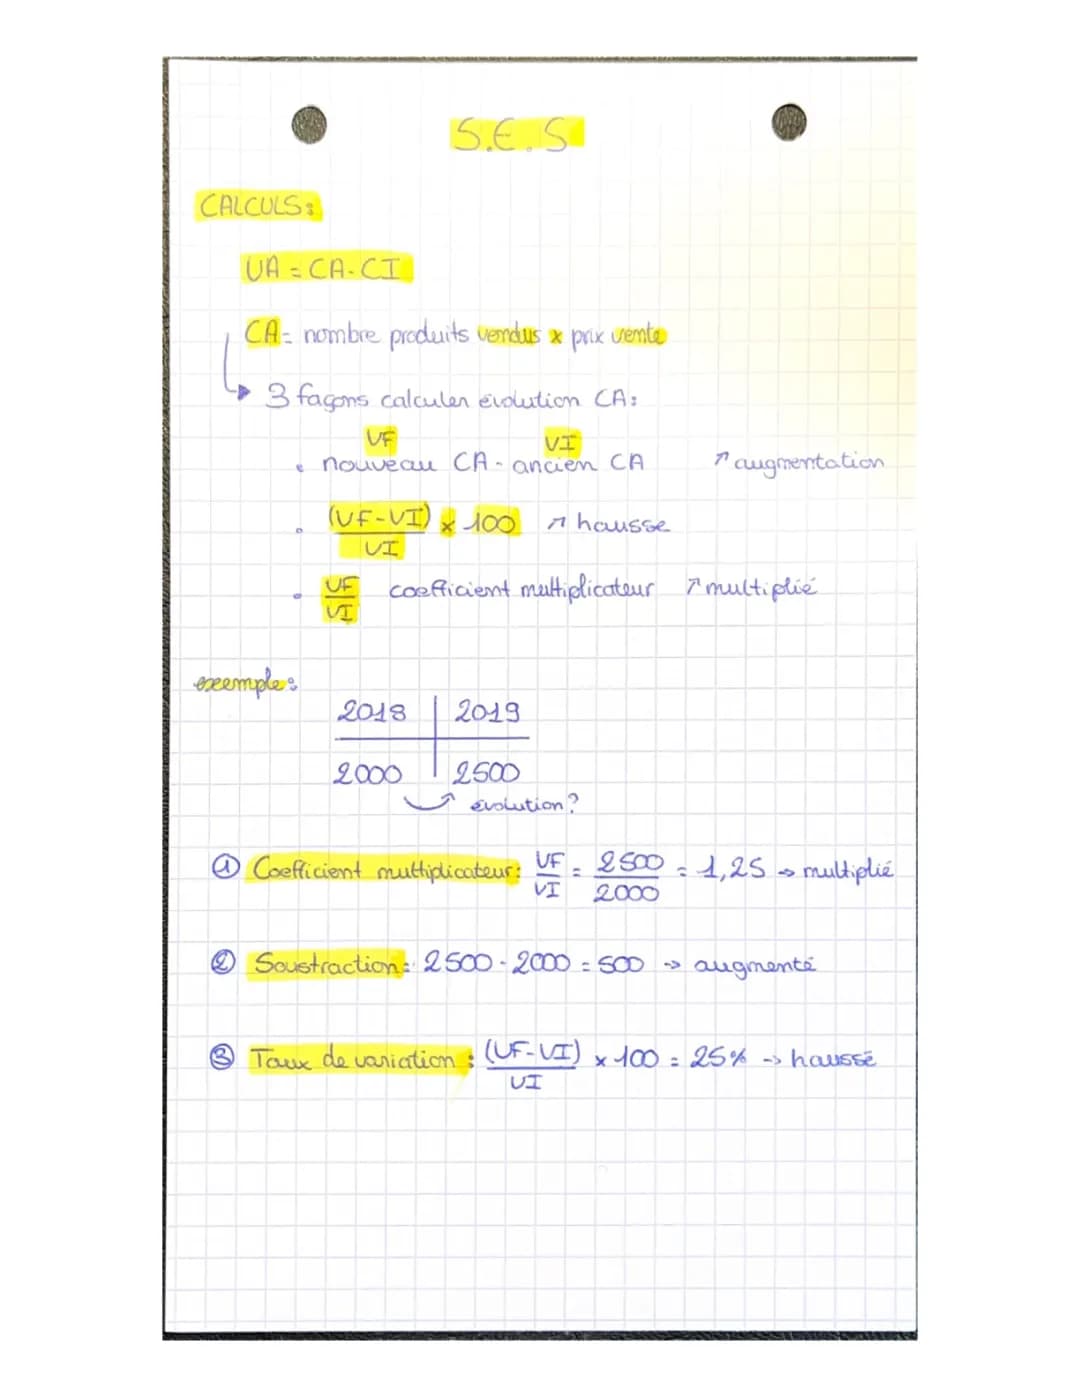 S.E.S
CALCULS:
VA = CA - CI
CA = nombre produits vendus x prix vente
↳ 3 façons calculer évolution CA:
VF VI
• nouveau CA - ancien CA ↗ augmentation
• (VF-VI) x 100 ↗ hausse
VI
• VF coefficient multiplicateur ↗ multiplié
VI
exemple:
2018 | 2019
2000 | 2500
évolution?
① Coefficient multiplicateur: VF = 2500 = 1,25 → multiplié
VI 2000
② Soustraction: 2500 - 2000 = 500 → augmenté
③ Taux de variation: (VF-VI) x 100 = 25% → haussé
VI